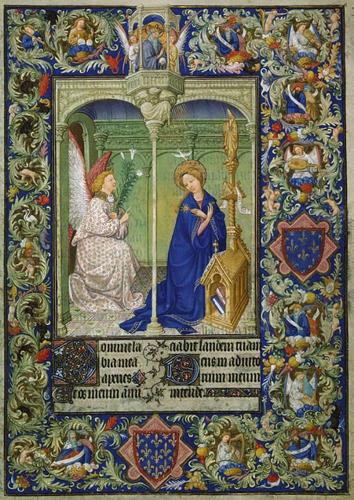 Domine la
bia mea
aperies
Et os meum anu
ciabit laudem tuam
Deus in adiuto
rium meum
intende